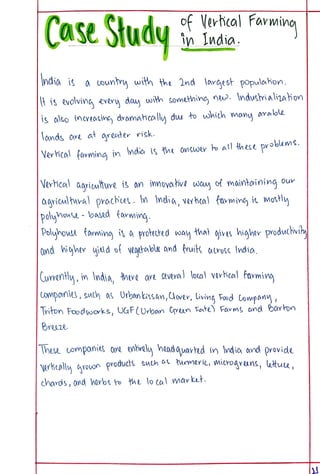 Case Study of Vertical Farming
in India.
India is a country with the 2nd largest population.
It is evolving every day with something new. Industrialization
is also increasing dramatically due to which many arable
lands are at greater risk.
Vertical farming in India is the answer to all these problems.
Vertical agriculture is an innovative way of maintaining our
agricultural practices. In India, vertical farming is mostly
polyhouse - based farming.
Polyhouse farming is a protected way that gives higher productivity
and higher yield of vegetable and fruits across India.
Currently, in India, there are several local vertical farming
companies, such as Urbankissan, Clover, Living Food Company,
Triton Foodworks, UGF (Urban Green Fate) Farms and Barton
Breeze.
These companies are entirely headquarted in India and provide
vertically grown products such as turmeric, microgreens, lettuce,
chards, and herbs to the local market.